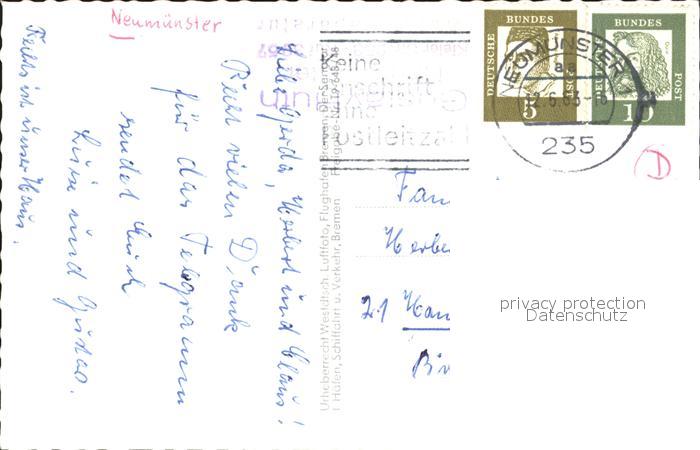 Neumünster
Liebe Gerda, Herbert und Claus!
Recht vielen Dank
für das Telegramm
sendet Euch
Luise und Gustav.
Rechts ist unser Haus.
Urheberrecht Westdtsch. Luftfoto, Flughafen Bremen, Der Senator
f. Häfen, Schiffahrt u. Verkehr, Bremen
Keine
Anschrift
ohne
Postleitzahl
DEUTSCHE BUNDES POST
5
DEUTSCHE BUNDES POST
10
NEUMÜNSTER
aa
12.6.63-18
235
Fam
Herbe
21 Ham
Bir
privacy protection
Datenschutz